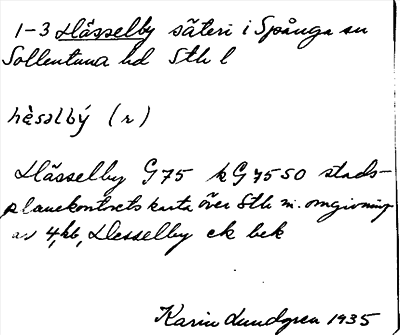 1-3 Hässelby säteri i Spånga sn
Sollentuna hd Sth l
hèsəlbý (r)
Hässelby G75 kG7550 stads-
planekontorets karta över Sth m. omgivning
av 4, kb, Hesselby ek bek
Karin Lundgren 1935